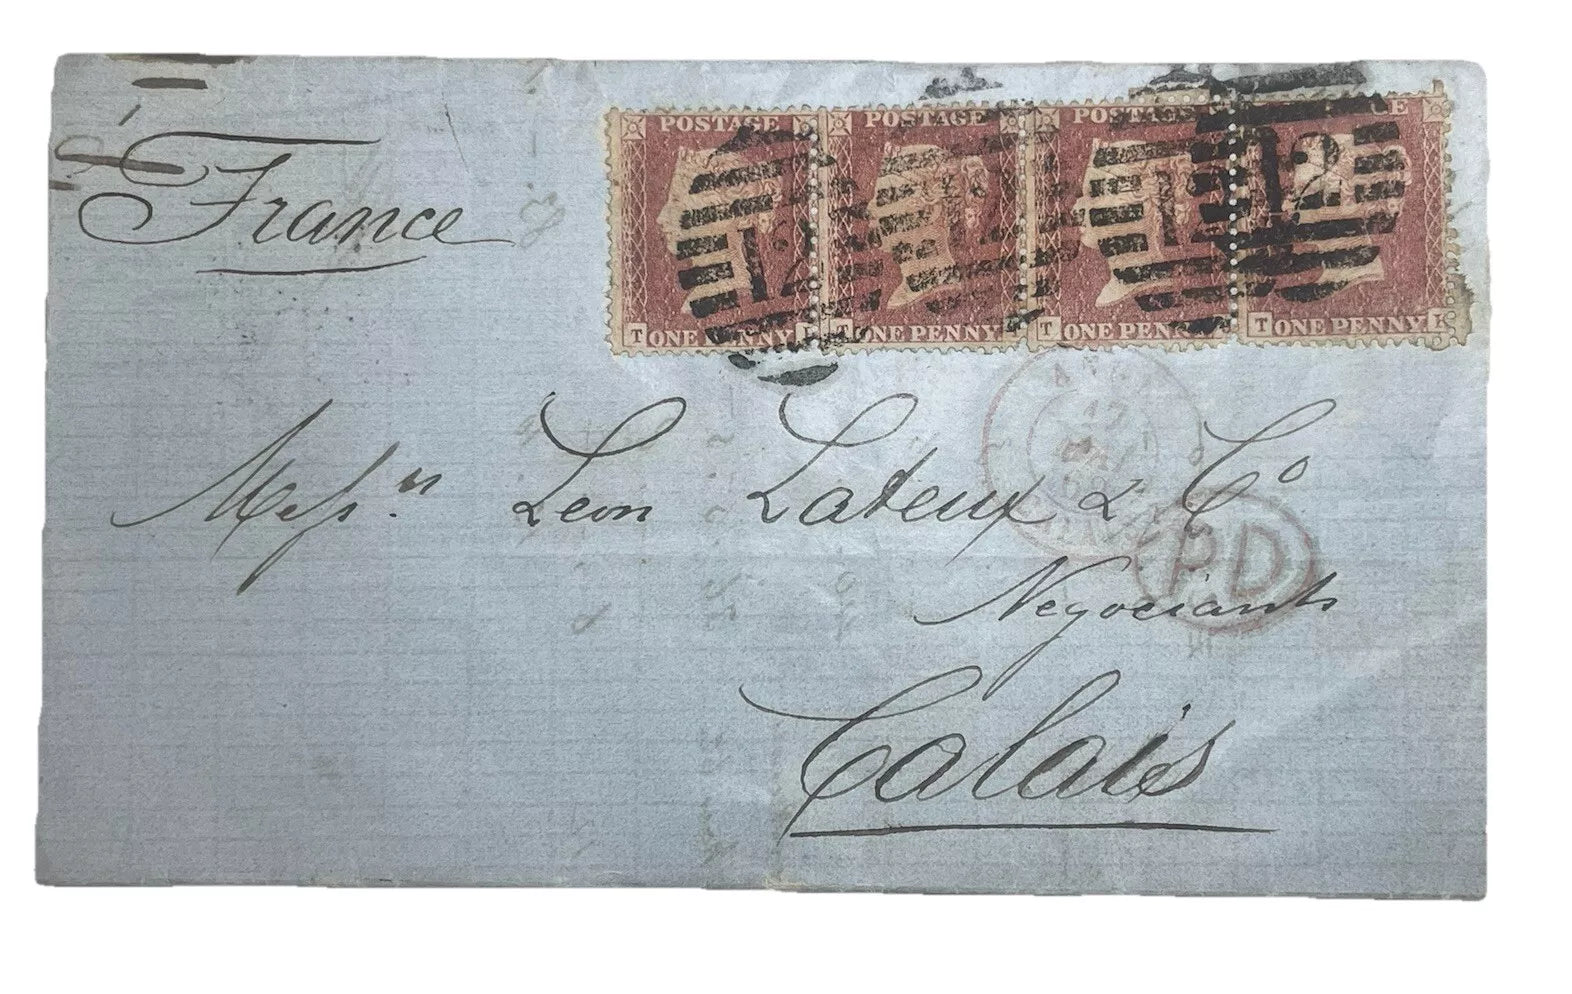 France
POSTAGE POSTAGE POSTAGE
T ONE PENNY ONE PENNY T ONE PENNY T ONE PENNY
12 12 12
Messrs Leon Lateux & Co
Negociants
Calais
PD